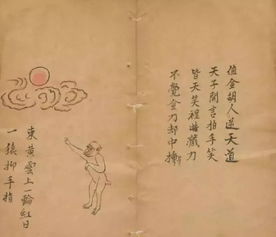 值金胡人逆天道
天子開言拍手笑
皆天笑裡曲藏刀
不覺金刀却中
東黃雲上一輪紅日
一猿抑手指